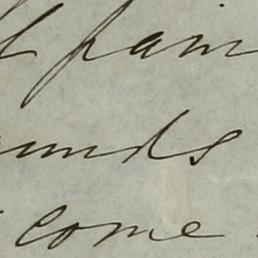 pain
unds
come